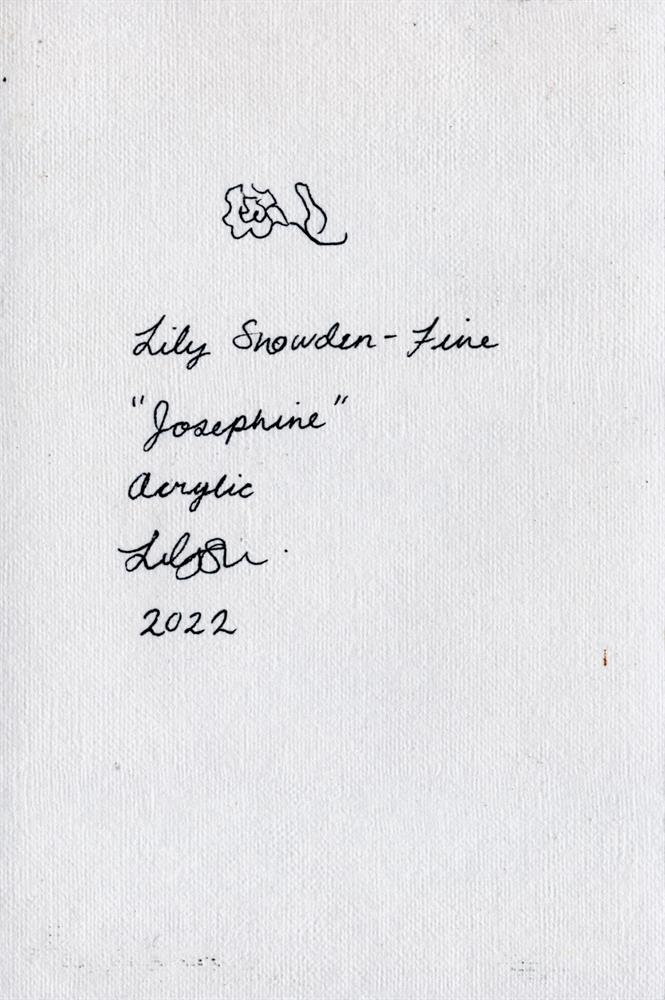 Lily Snowden-Fine
"Josephine"
Acrylic
2022